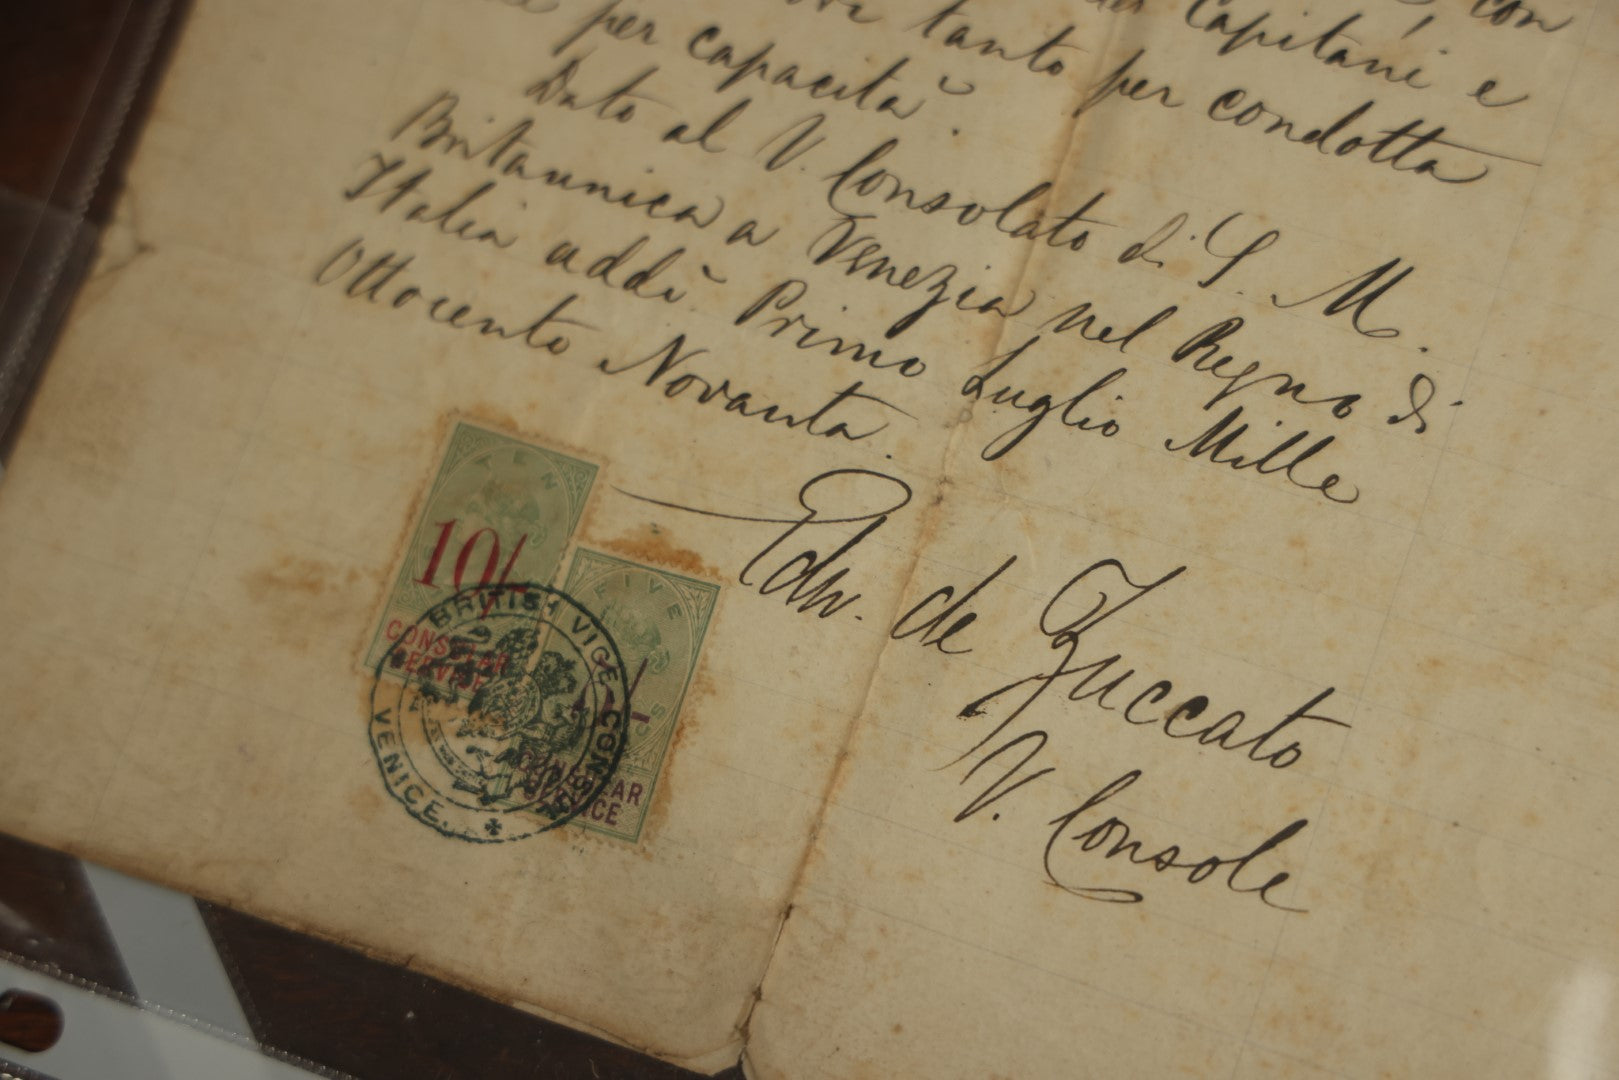 con
Capitani e
tanto per condotta
per capacità.
Dato al V. Consolato di S. M.
Britannica a Venezia nel Regno di
Italia addì Primo Luglio Mille
Ottocento Novanta.
Edw. de Zuccato
V. Console
TEN
10/-
CONSULAR
SERVICE
FIVE
CONSULAR
SERVICE
BRITISH VICE-CONSULATE
VENICE.